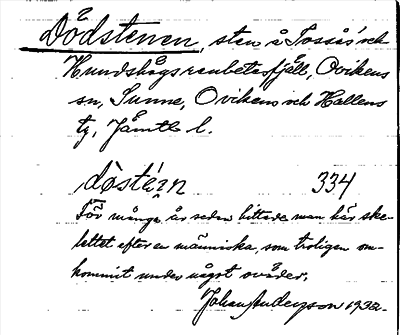 Dödstenen, sten å Tossås och
Hundshågs renbetesfjäll, Ovikens
sn, Sunne, Oviken och Hallens
tg, Jämtl. l.
dösteìn 334
För många år sedan hittade man här ske-
lettet efter en människa, som troligen om-
kommit under något oväder.
Johan Anderzson 1932.